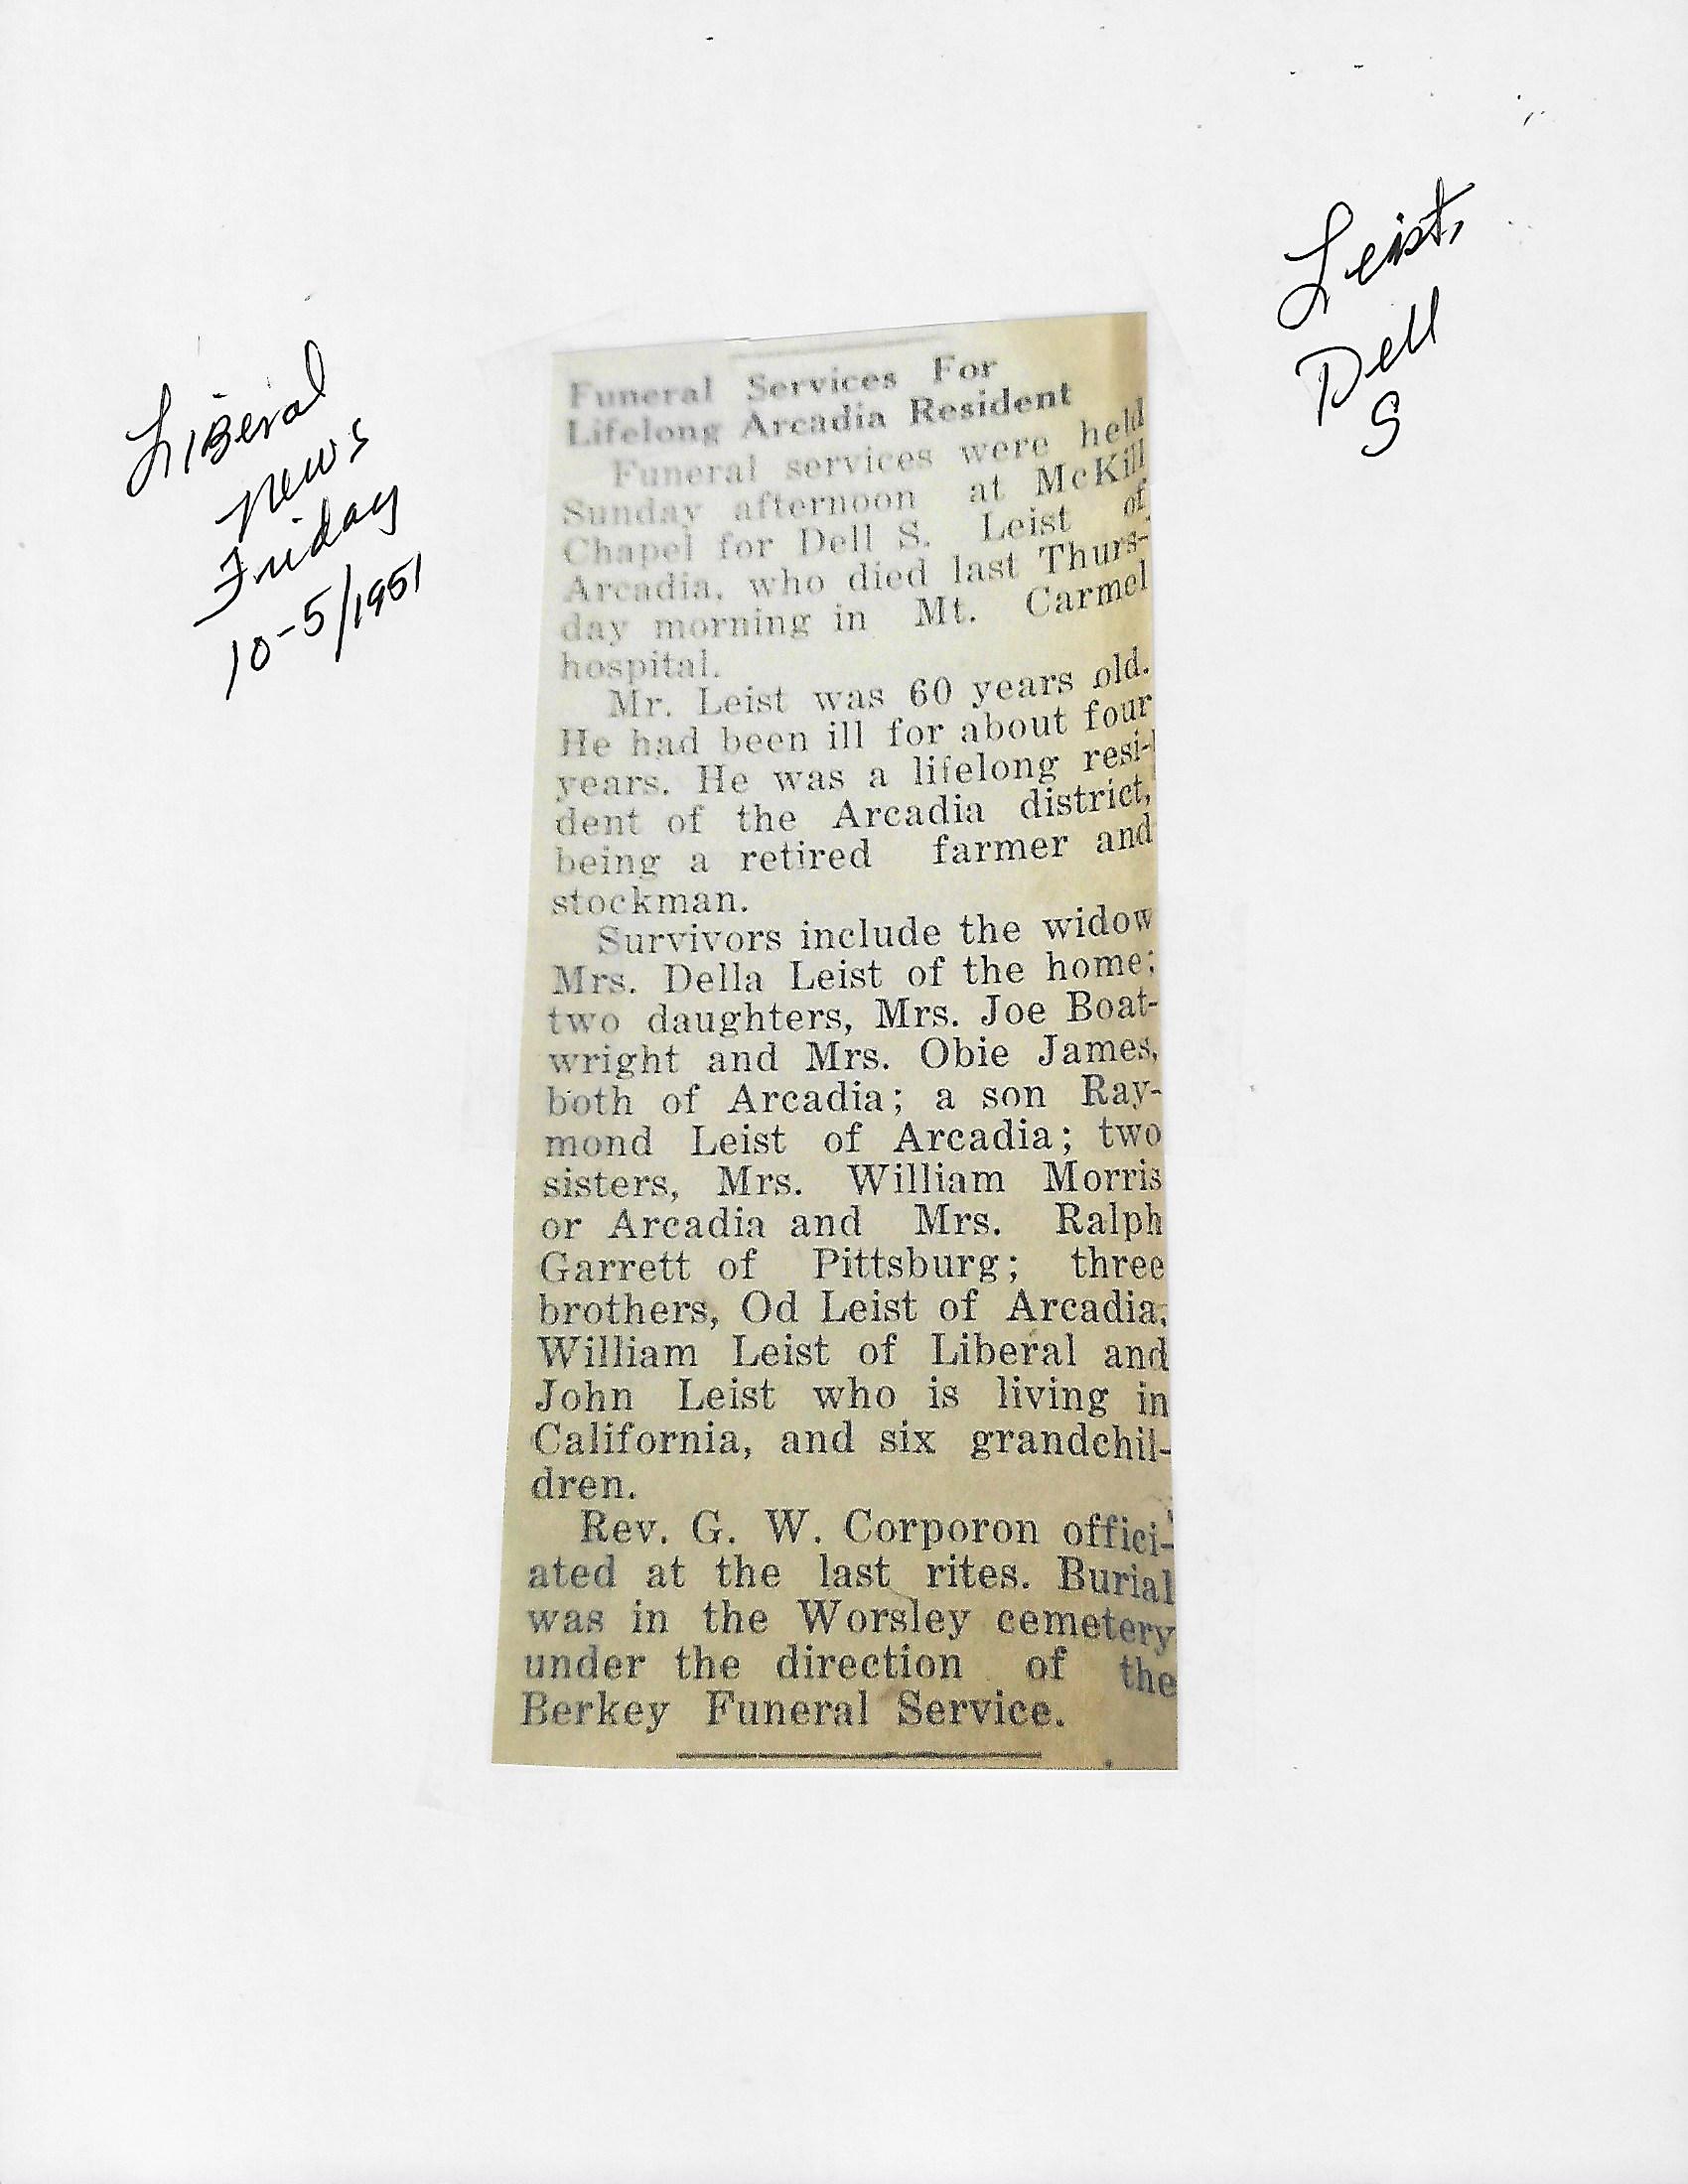 Leist,
Dell
S
Liberal
News
Friday
10-5/1951
Funeral Services For
Lifelong Arcadia Resident
Funeral services were held
Sunday afternoon at McKill
Chapel for Dell S. Leist of
Arcadia, who died last Thurs-
day morning in Mt. Carmel
hospital.
Mr. Leist was 60 years old.
He had been ill for about four
years. He was a lifelong resi-
dent of the Arcadia district,
being a retired farmer and
stockman.
Survivors include the widow
Mrs. Della Leist of the home;
two daughters, Mrs. Joe Boat-
wright and Mrs. Obie James,
both of Arcadia; a son Ray-
mond Leist of Arcadia; two
sisters, Mrs. William Morris
or Arcadia and Mrs. Ralph
Garrett of Pittsburg; three
brothers, Od Leist of Arcadia;
William Leist of Liberal and
John Leist who is living in
California, and six grandchil-
dren.
Rev. G. W. Corporon offici-
ated at the last rites. Burial
was in the Worsley cemetery
under the direction of the
Berkey Funeral Service.